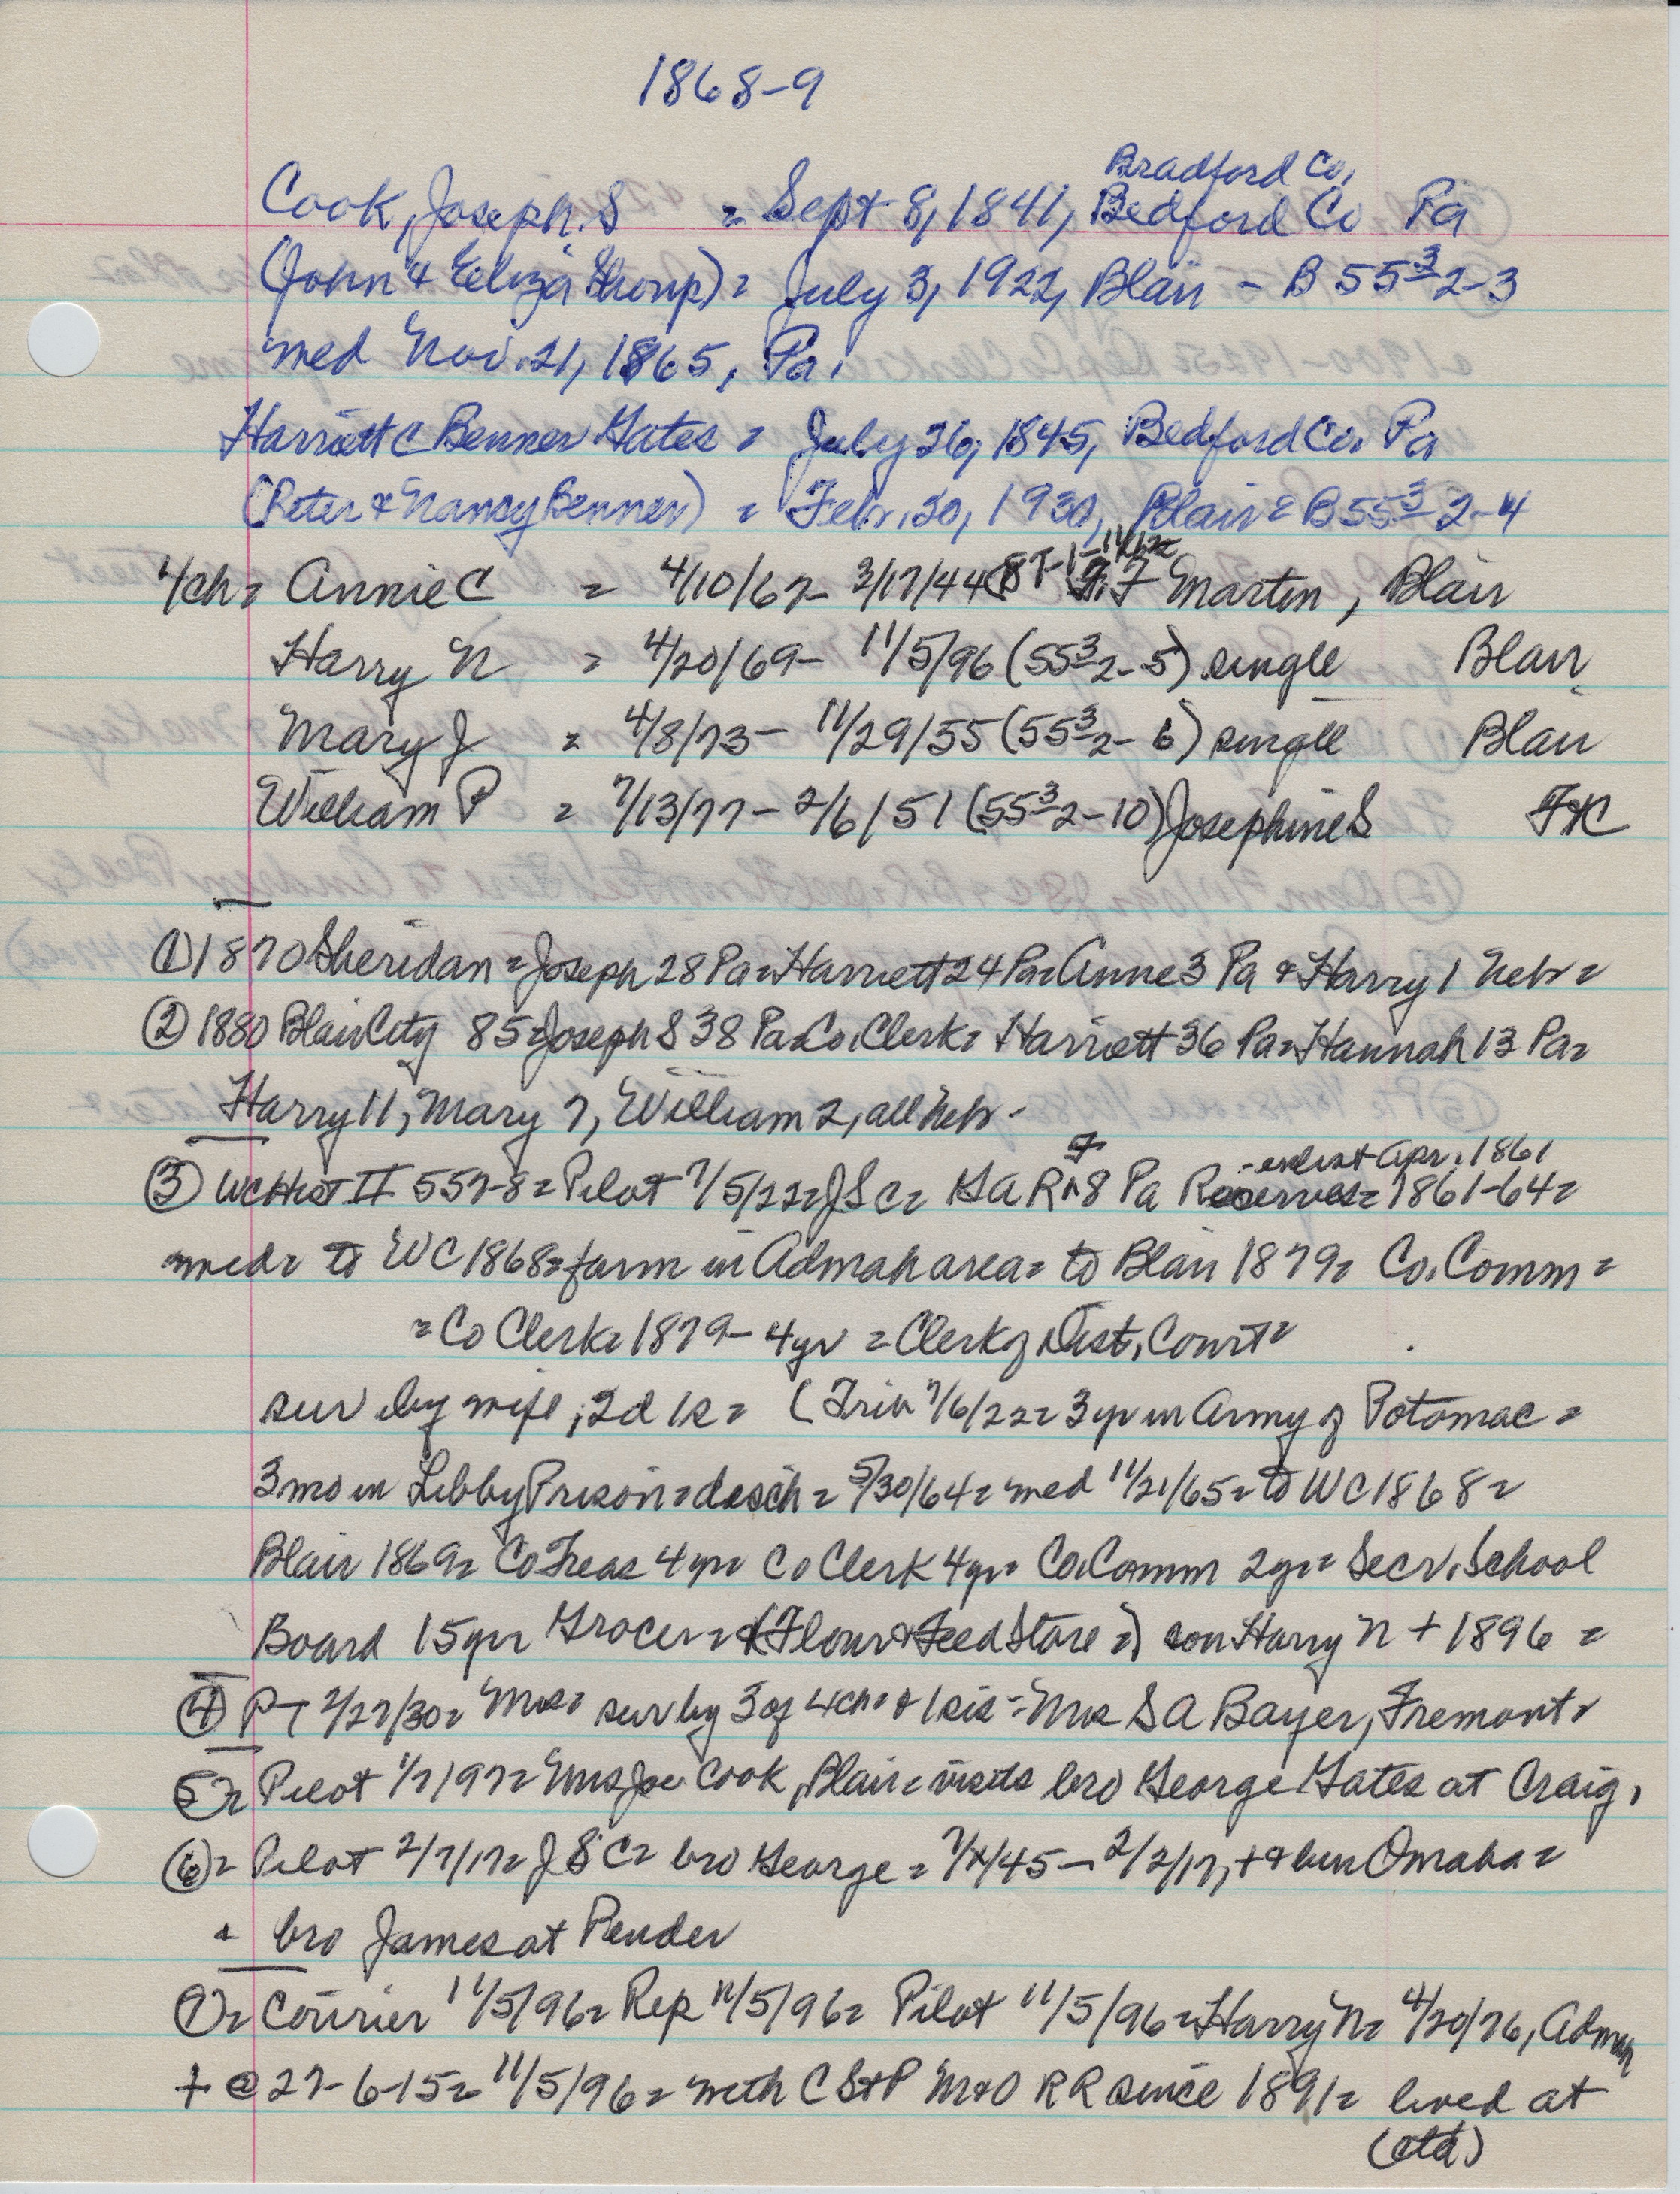 1868-9
Bradford Co,
Cook, Joseph S = Sept 8, 1841, Bedford Co Pa
(John & Eliza Shoup) = July 3, 1922, Blair - B 55 3/2-3
med Nov. 21, 1865, Pa.
Harriett C Benner Gates = July 26, 1845, Bedford Co. Pa
(Peter & Nancy Benner) = Feb. 20, 1930, Blair = B 55 3/2-4
4/ch = Annie C = 4/10/67 - 3/17/44 F Martin, Blair
Harry N = 4/20/69 - 11/5/96 (55 3/2-5) single Blair
Mary J = 4/8/73 - 11/29/55 (55 3/2-6) single Blair
William P = 7/13/77 - 2/6/51 (55 3/2-10) Josephine S
① 1870 Sheridan = Joseph 28 Pa = Harriett 24 Pa = Anne 3 Pa & Harry 1 Nebr =
② 1880 Blair City 85 = Joseph S 38 Pa = Co. Clerk = Harriett 36 Pa = Hannah 13 Pa =
Harry 11, Mary 7, William 2, all Nebr -
- enlist Apr. 1861
③ WC Hist II 557-8 = Pilot 7/5/22 = JSC = GAR = F 8 Pa Reserves = 1861-64 =
med = to WC 1868 = farm in Admah area = to Blair 1879 = Co. Comm =
= Co Clerk = 1879 - 4yr = Clerk of Dist. Court =
sur by wife, 2d 1s = (Trib 7/6/22 = 3yr in Army of Potomac =
3 mo in Libby Prison = disch = 5/30/64 = med 11/21/65 = to WC 1868 =
Blair 1869 = Co Treas 4yr = Co Clerk 4yr = Co. Comm 2yr = Secr. School
Board 15yr = Grocer = (Flour & Feed Store =) son Harry N + 1896 =
④ P-T 2/27/30 = Mrs = sur by 3 of 4 ch = & 1 sis = Mrs S A Bayer, Fremont =
⑤ = Pilot 1/7/97 = Mrs Joe Cook, Blair = visits bro George Gates at Craig,
⑥ = Pilot 2/7/17 = J S C = bro George = 7/x/45 - 2/2/17, + & bur Omaha =
& bro James at Pender
⑦ = Courier 11/5/96 = Rep 11/5/96 = Pilot 11/5/96 = Harry N = 4/20/76, Admah
+ @ 27-6-15 = 11/5/96 = with C St P M & O RR since 1891 = lived at
(ctd)